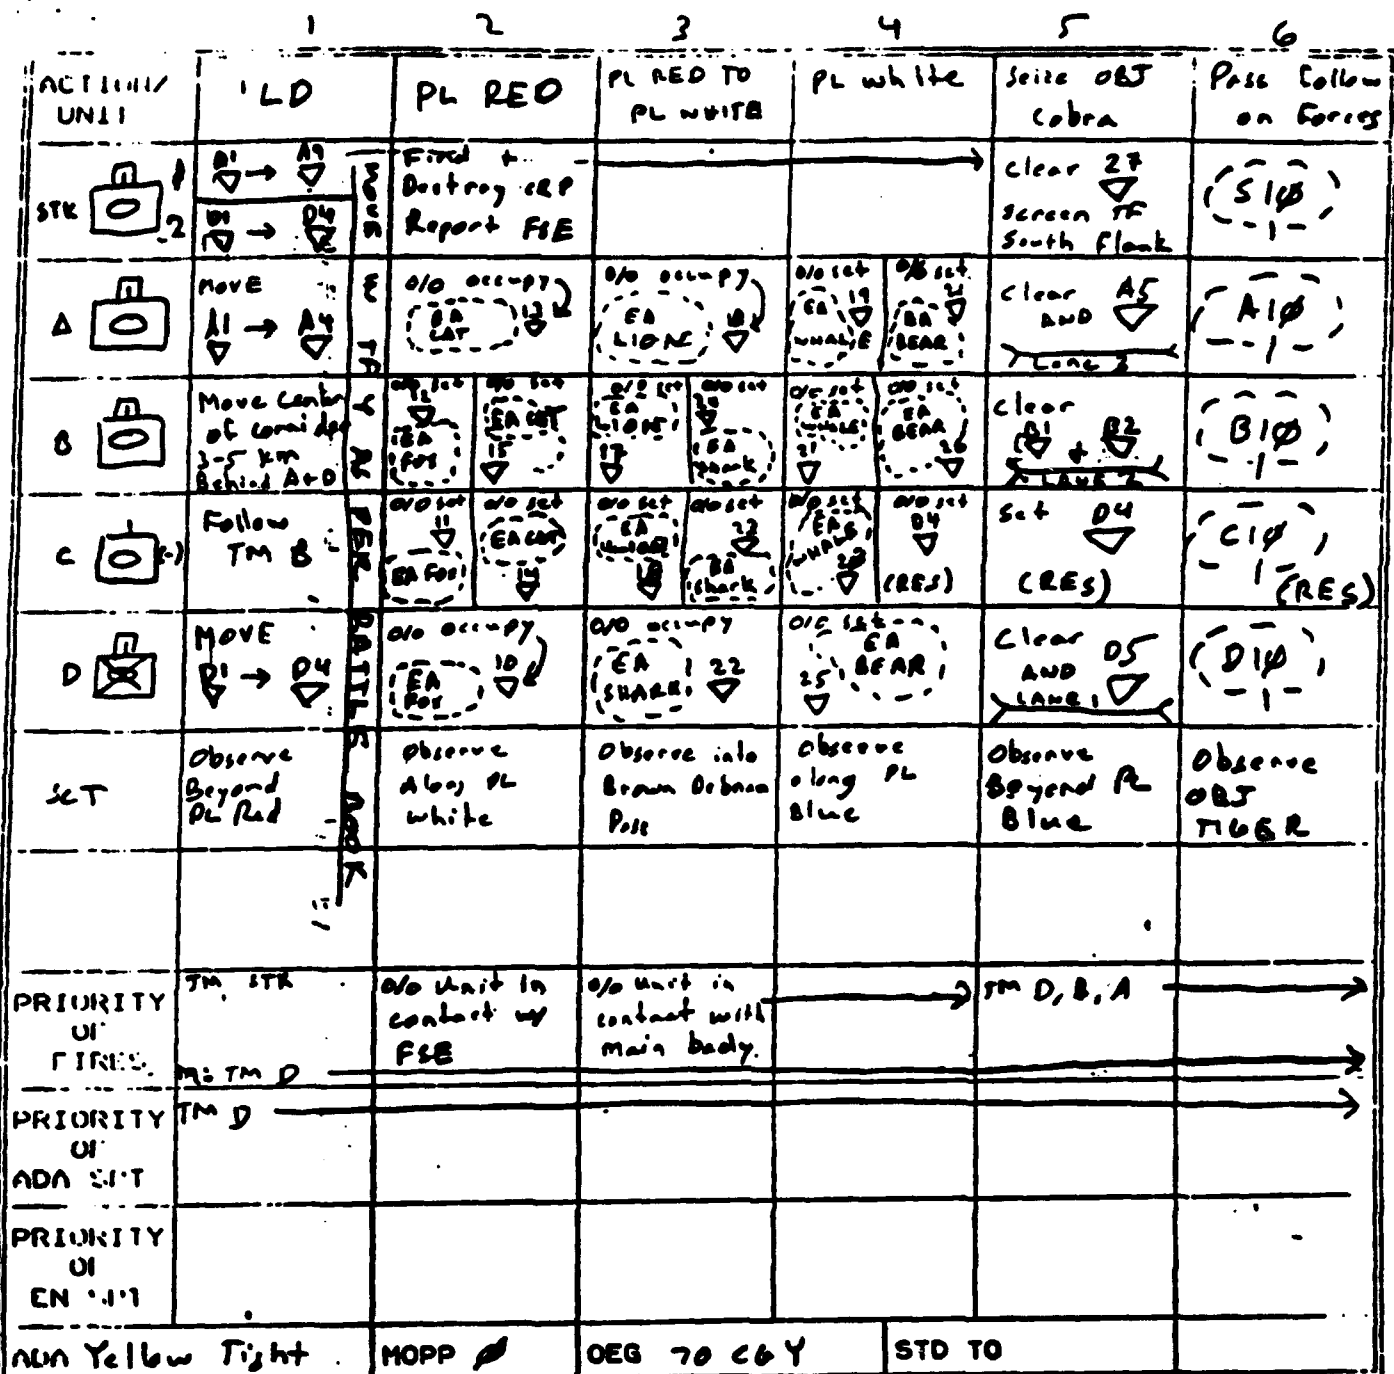 1 2 3 4 5 6
ACTION/ UNIT
LD
PL RED
PL RED TO PL WHITE
PL White
Seize OBJ Cobra
Pass Follow on Forces
STK
1
2
A1 → A9
D1 → D4
Find +
Destroy CRP
Report FSE
Clear 27
Screen TF
South Flank
S1Ø
PER BATTLE BOOK
A
MOVE
A1 → A4
O/O occupy
EA CAT 13
O/O occupy
EA LION 18
O/O set
EA WHALE 19
O/O set
EA BEAR
Clear A5
AND
Lane 3
A1Ø
B
Move Center
of corridor
3-5 km
Behind A+D
O/O set
12
EA FOX
O/O set
EA CAT
15
O/O set
EA LION
17
O/O set
EA Shark
O/O set
EA WHALE
21
O/O set
EA BEAR
26
Clear
B1 + B2
LANE 2
B1Ø
C
(-)
Follow
TM B
O/O set
11
EA FOX
O/O set
EA CAT
14
O/O set
EA LION
O/O set
23
EA Shark
O/O set
EA WHALE
O/O set
D4
(RES)
Set D4
(RES)
C1Ø
(RES)
D
MOVE
D1 → D4
O/O occupy
EA FOX 10
O/O occupy
EA SHARK 22
O/O set
EA BEAR
25
Clear D5
AND
LANE 1
D1Ø
SCT
Observe
Beyond
PL Red
Observe
Along PL
White
Observe into
Brown Debnam
Pass
Observe
along PL
Blue
Observe
Beyond PL
Blue
Observe
OBJ
TIGER
PRIORITY
OF
FIRES
TM STK
M: TM D
O/O Unit in
contact w/
FSE
O/O Unit in
contact with
main body.
TM D, B, A
PRIORITY
OF
ADA SPT
TM D
PRIORITY
OF
EN SPT
ADA Yellow Tight
MOPP Ø
OEG 70 CGY
STD TO